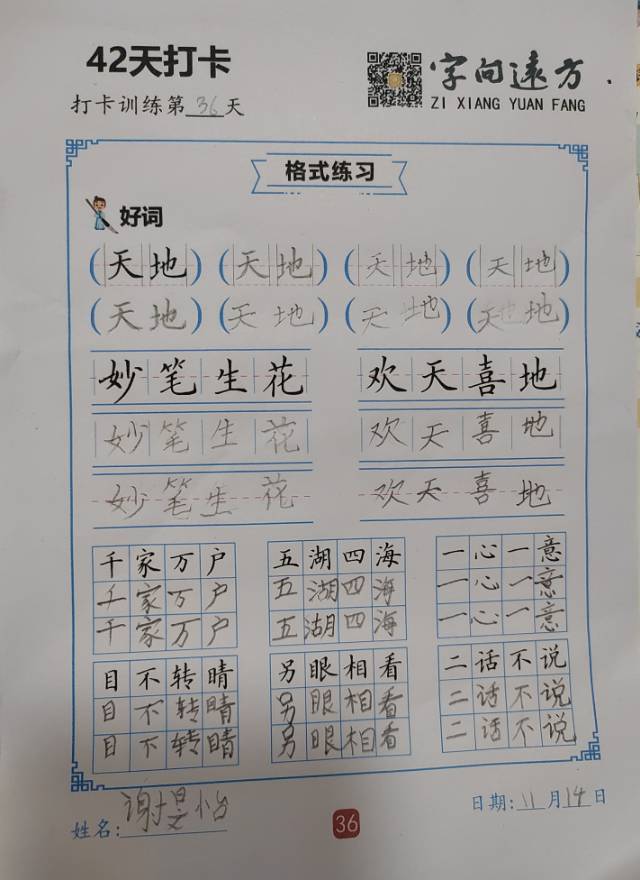 42天打卡
字向远方
ZI XIANG YUAN FANG
打卡训练第36天
格式练习
好词
(天地) (天地) (天地) (天地)
(天地) (天地) (天地) (天地)
妙笔生花 欢天喜地
妙笔生花 欢天喜地
妙笔生花 欢天喜地
千家万户 五湖四海 一心一意
千家万户 五湖四海 一心一意
千家万户 五湖四海 一心一意
目不转睛 另眼相看 二话不说
目不转睛 另眼相看 二话不说
目不转睛 另眼相看 二话不说
姓名:谢旻怡
36
日期:11月14日